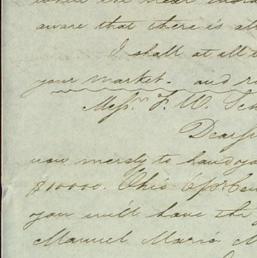 aware that there is al
I shall at all t
your market. and r
Messrs F. W. Sch
Dear S
you merely to hand yo
$10000. Ohio 6 pr Cen
you will have the
Manuel Mario M